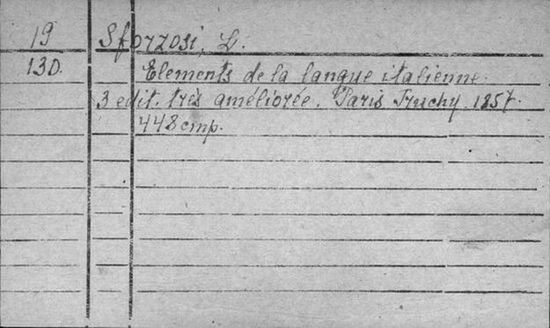 19 Sforzosi, L.
130. Elements de la langue italienne.
3 edit. très améliorée. Paris Truchy. 1857.
448 стр.